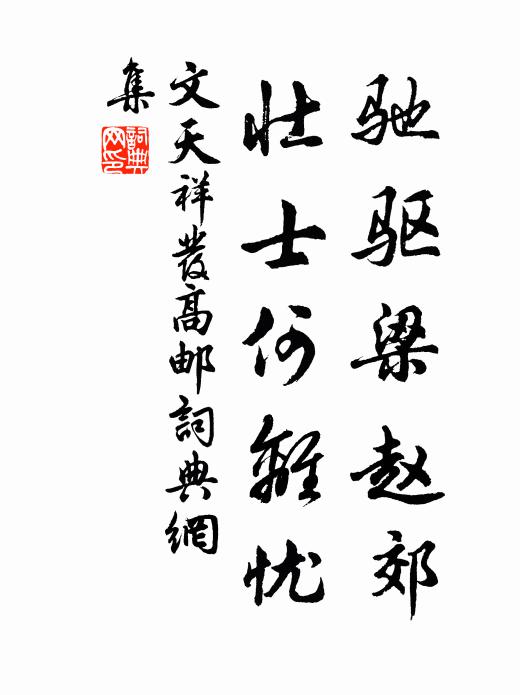 驰驱梁赵郊
壮士何離忧
文天祥發高邮詞典網
集
詞典网印